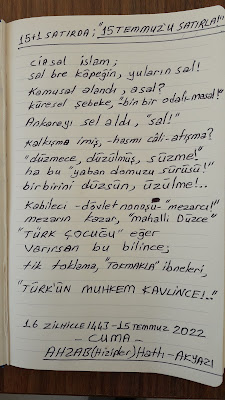 15+1 SATIRDA; "15 TEMMUZ'U SATIRLA!"
Ciasal islam;
sal bre köpeğin, yuların sal!
Kamusal alandı, asal?
küresel şebeke, "bin bir odalı-masal!"
Ankarayı sel aldı, "sal!"
Kalkışma imiş, -hasmı câli-atışma?
"düzmece, düzülmüş, süzme!"
ha bu "yaban domuzu sürüsü!"
birbirini düzsün, üzülme!..
Kabileci -dövlet nonoşu- "mezarcı!"
mezarın kazar, "mahalli Düzce"
"TÜRK ÇOCUĞU" eğer
Varırsan bu bilince;
tik toklama, "TOKMAKLA" ibneleri,
"TÜRK'ÜN MUHKEM KAVLİNCE!.."
16 ZİLHİCCE 1443-15 TEMMUZ 2022
- CUMA -
AHZAB(Hizipler) Hattı-AKYAZI